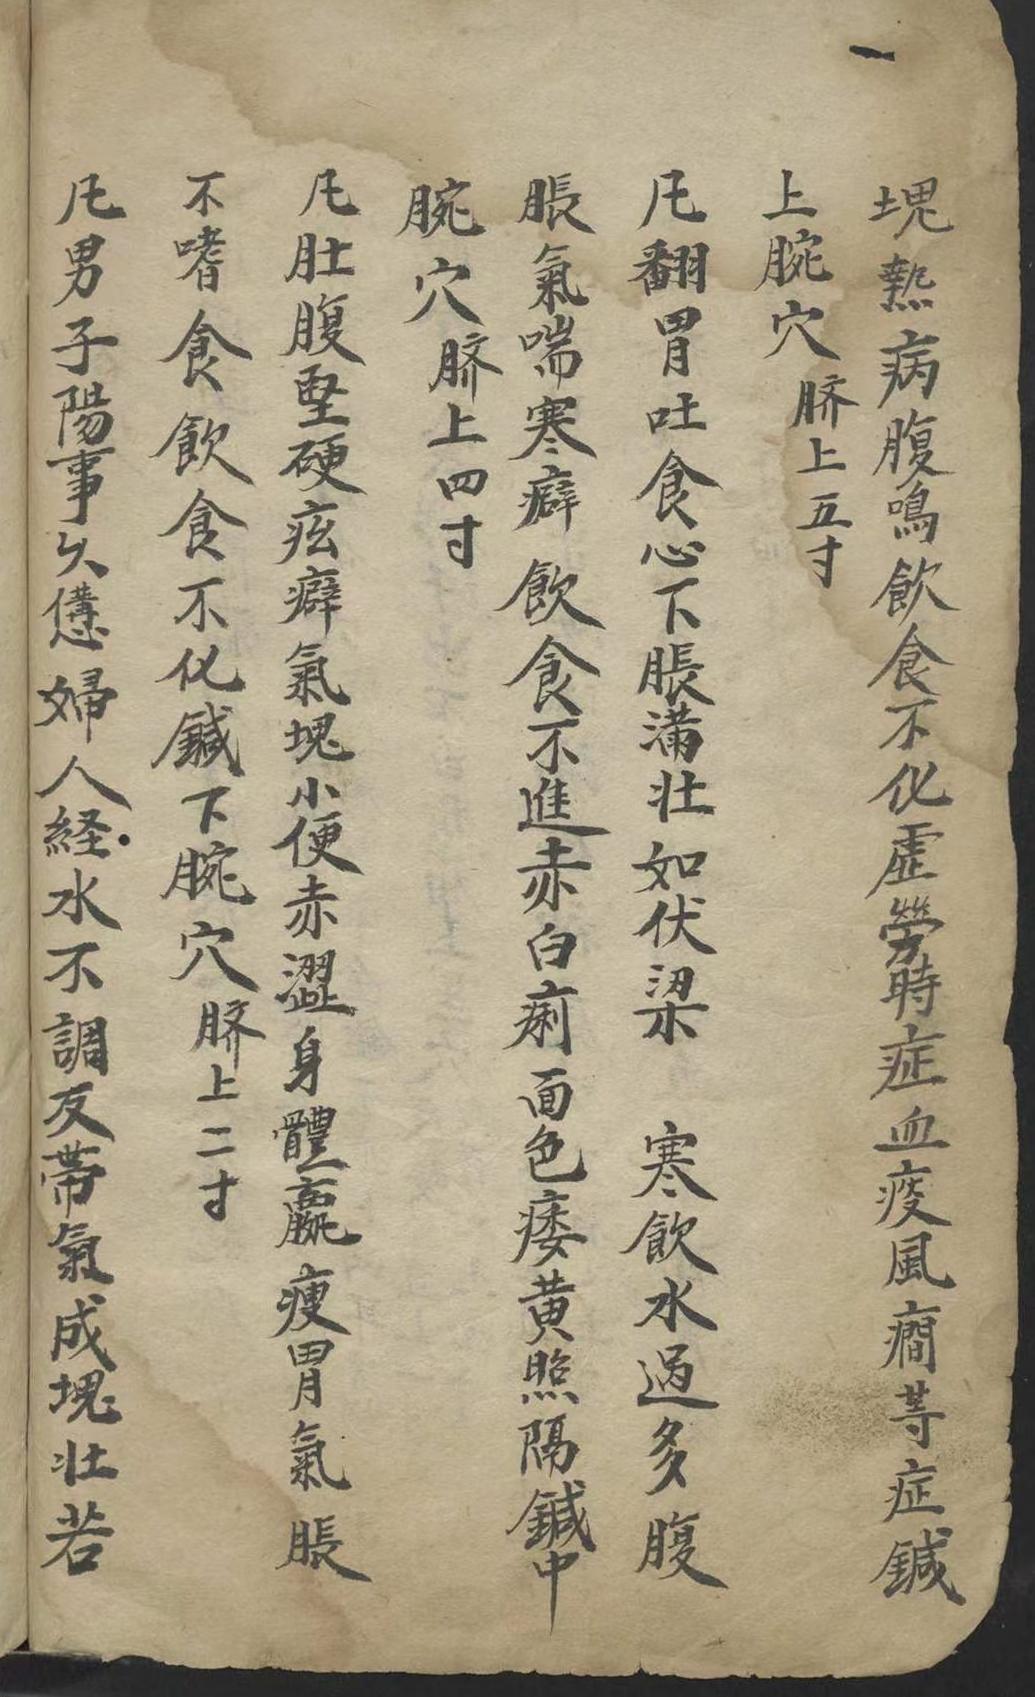 塊熱病腹鳴飲食不化虛勞時症血疫風癇等症鍼
上腕穴臍上五寸
凡翻胃吐食心下脹滿壮如伏梁寒飲水過多腹
脹氣喘寒癖飲食不進赤白痢面色痿黄照隔鍼中
腕穴臍上四寸
凡肚腹堅硬痃癖氣塊小便赤澀身體羸瘦胃氣脹
不嗜食飲食不化鍼下腕穴臍上二寸
凡男子陽事久憊婦人経水不調反帶氣成塊壮若